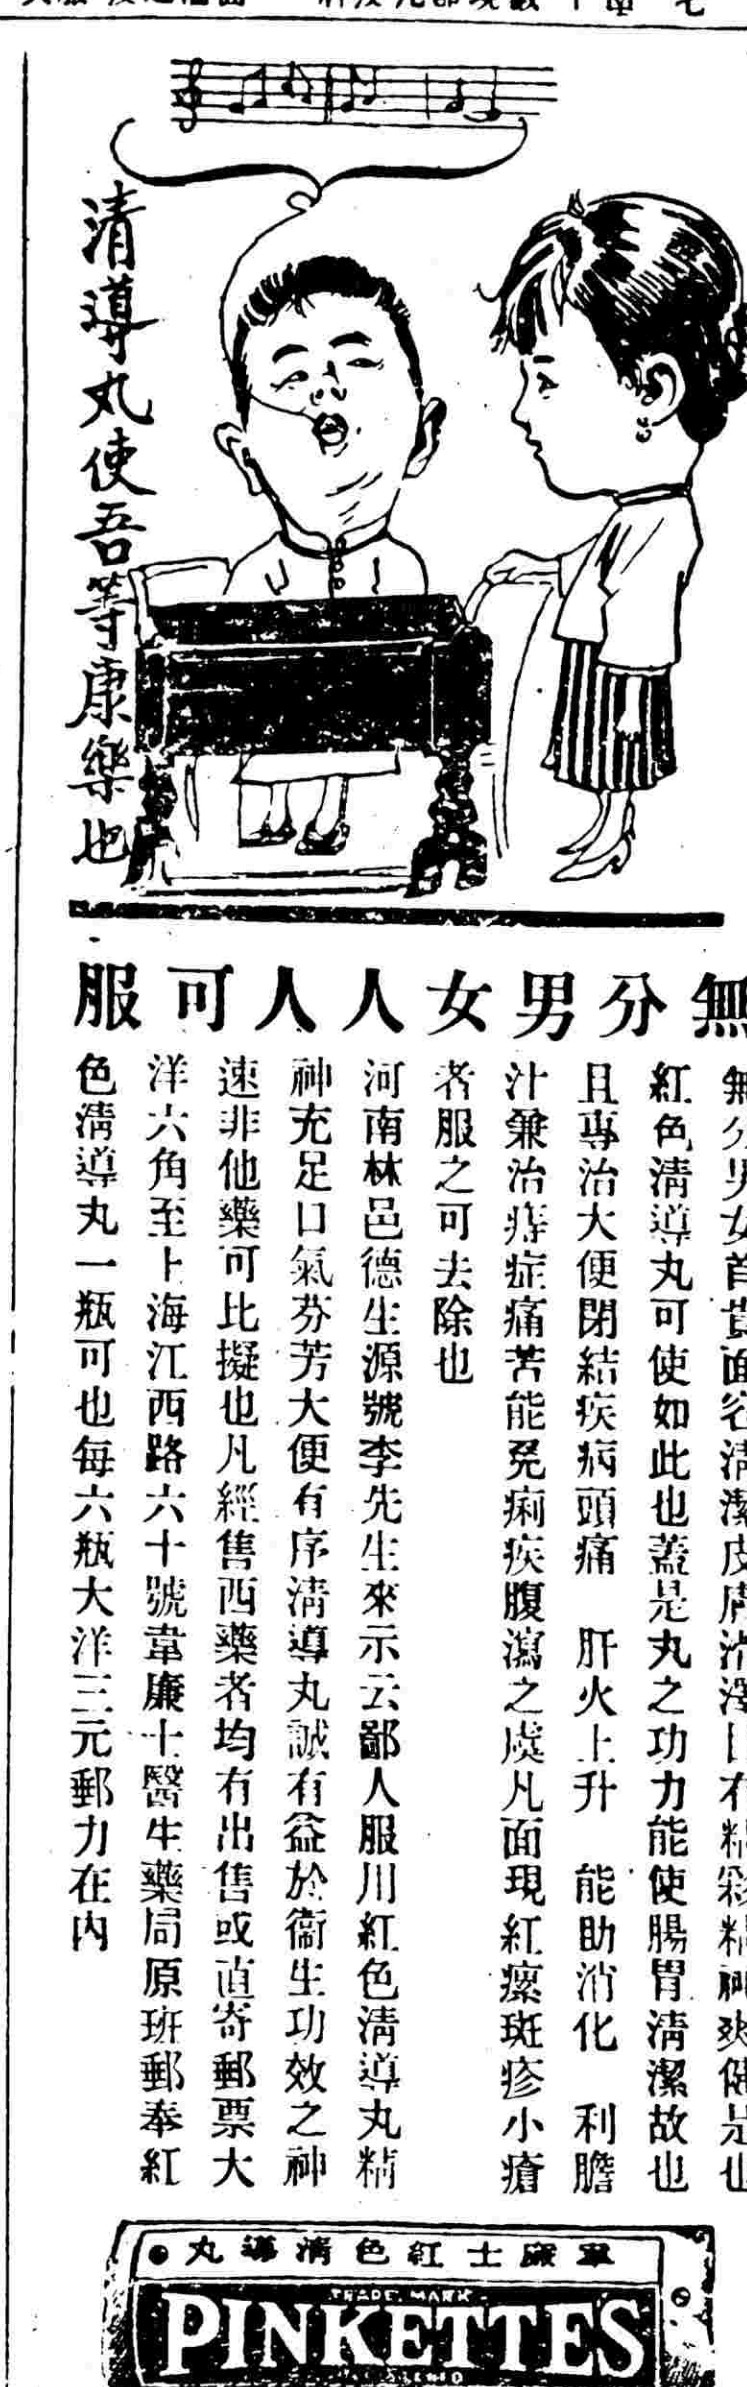 清導丸使吾等康樂也
無分男女人人可服
無分男女首貴面容清潔皮膚滑澤日有精彩精神爽健是也
紅色清導丸可使如此也蓋是丸之功力能使腸胃清潔故也
且專治大便閉結疾病頭痛 肝火上升 能助消化 利膽
汁兼治痔症痛苦能免痢疾腹瀉之虞凡面現紅瘰斑疹小瘡
者服之可去除也
河南林邑德生源號李先生來示云鄙人服用紅色清導丸精
神充足口氣芬芳大便有序清導丸誠有益於衛生功效之神
速非他藥可比擬也凡經售西藥者均有出售或直寄郵票大
洋六角至上海江西路六十號韋廉士醫生藥局原班郵奉紅
色清導丸一瓶可也每六瓶大洋三元郵力在內
韋廉士紅色清導丸
TRADE MARK
PINKETTES